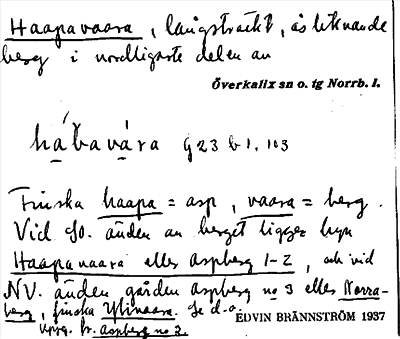 Haapavaara, långsträckt, åsliknande
berg i nordligaste delen av
Överkalix sn o. tg Norrb. l.
hábavára g 23 b 1, 103
Finska haapa = asp, vaara = berg.
Vid SO. änden av berget ligger byn
Haapavaara eller Aspberg 1-2, och vid
NV. änden gården Aspberg no 3 eller Norra-
berg, finska Ylivaara. Se d.o.
EDVIN BRÄNNSTRÖM 1937
Uppg. fr. Aspberg no 2.